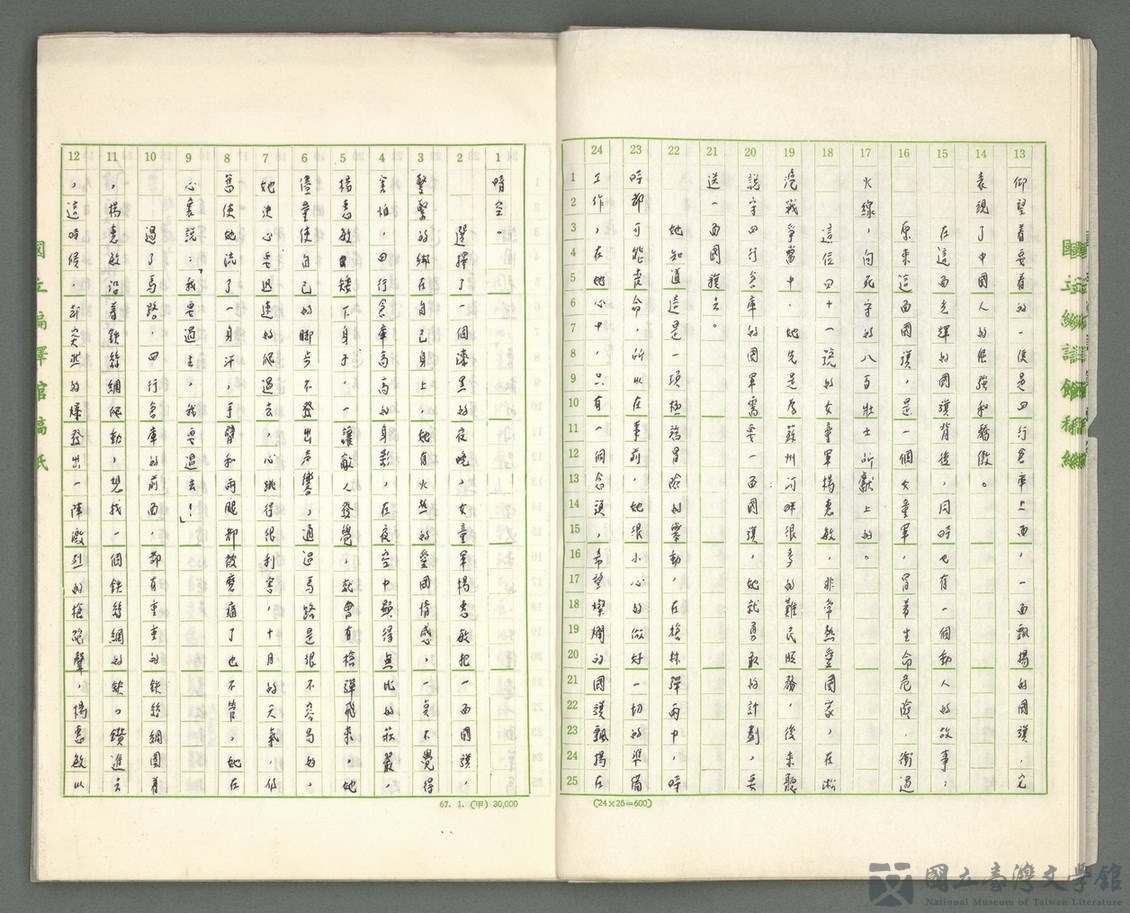 13 14 15 16 17 18 19 20 21 22 23 24
1 2 3 4 5 6 7 8 9 10 11 12 13 14 15 16 17 18 19 20 21 22 23 24 25
仰望着的,便是四行倉庫上面,一面飄揚的國旗,它
表現了中國人的倔強和驕傲。
在這面光輝的國旗背後,同時也有一個動人的故事:
原來這面國旗,是一個女童軍,冒着生命危險,衝過
火線,向死守的八百壯士所獻上的。
這位四十一號的女童軍楊惠敏,非常熱愛國家,在淞
滬戰爭當中,她先是為蘇州河畔很多的難民服務,後來聽
說守四行倉庫的國軍需要一面國旗,她就勇敢的計劃,要
送一面國旗去。
她知道這是一項極為冒險的舉動,在槍林彈雨中,時
時都可能喪命,所以在事前,她很小心的做好一切的準備
工作,在她心中,只有一個念頭,希望燦爛的國旗飄揚在
(24×25=600)
1 2 3 4 5 6 7 8 9 10 11 12
晴空。
選擇了一個漆黑的夜晚,女童軍楊惠敏把一面國旗,
緊緊的綁在自己身上,她有火熱的愛國情感,一点不覺得
害怕,四行倉庫高高的身影,在夜空中顯得無比的莊嚴,
楊惠敏矮下身子,一讓敵人發覺,就會有槍彈飛來,她
儘量使自己的脚步不發出声響,通過馬路是很不容易的,
她決心要迅速的爬過去,心跳得很利害,十月的天氣,仍
舊使她流了一身汗,手臂和兩腿都放磨痛了也不管,她在
心裏說:「我要過去,我要過去!」
過了馬路,四行倉庫的前面,都有重重的鉄絲網圍着
,楊惠敏沿着鉄絲網爬動,想找一個鉄絲網的缺口鑽進去
,這時候,却突然的爆發出一陣激烈的槍砲聲,楊惠敏以
67. 1. (甲) 30,000
國立編譯館稿紙
國立臺灣文學館
National Museum of Taiwan Literature